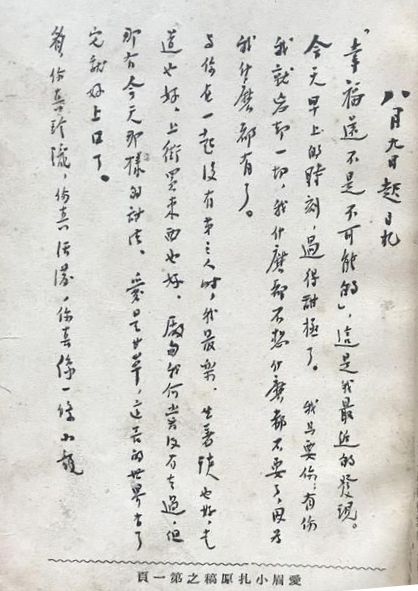 八月九日起日記
「幸福還不是不可能的」,這是我最近的發現。
今天早上的時刻,過得甜極了。我只要你;有你
我就忘却一切,我什麼都不想什麼都不要了,因為
我什麼都有了。
与你在一起沒有第三人時,我最樂。坐着談也好,走
道也好,上街買東西也好。廠甸我何嘗沒有去過,但
那有今天那樣的甜法。愛是甘草,這苦的世界有了
它就好上口了。
眉你真玲瓏,你真活潑,你真像一條小龍
愛眉小扎原稿之第一頁